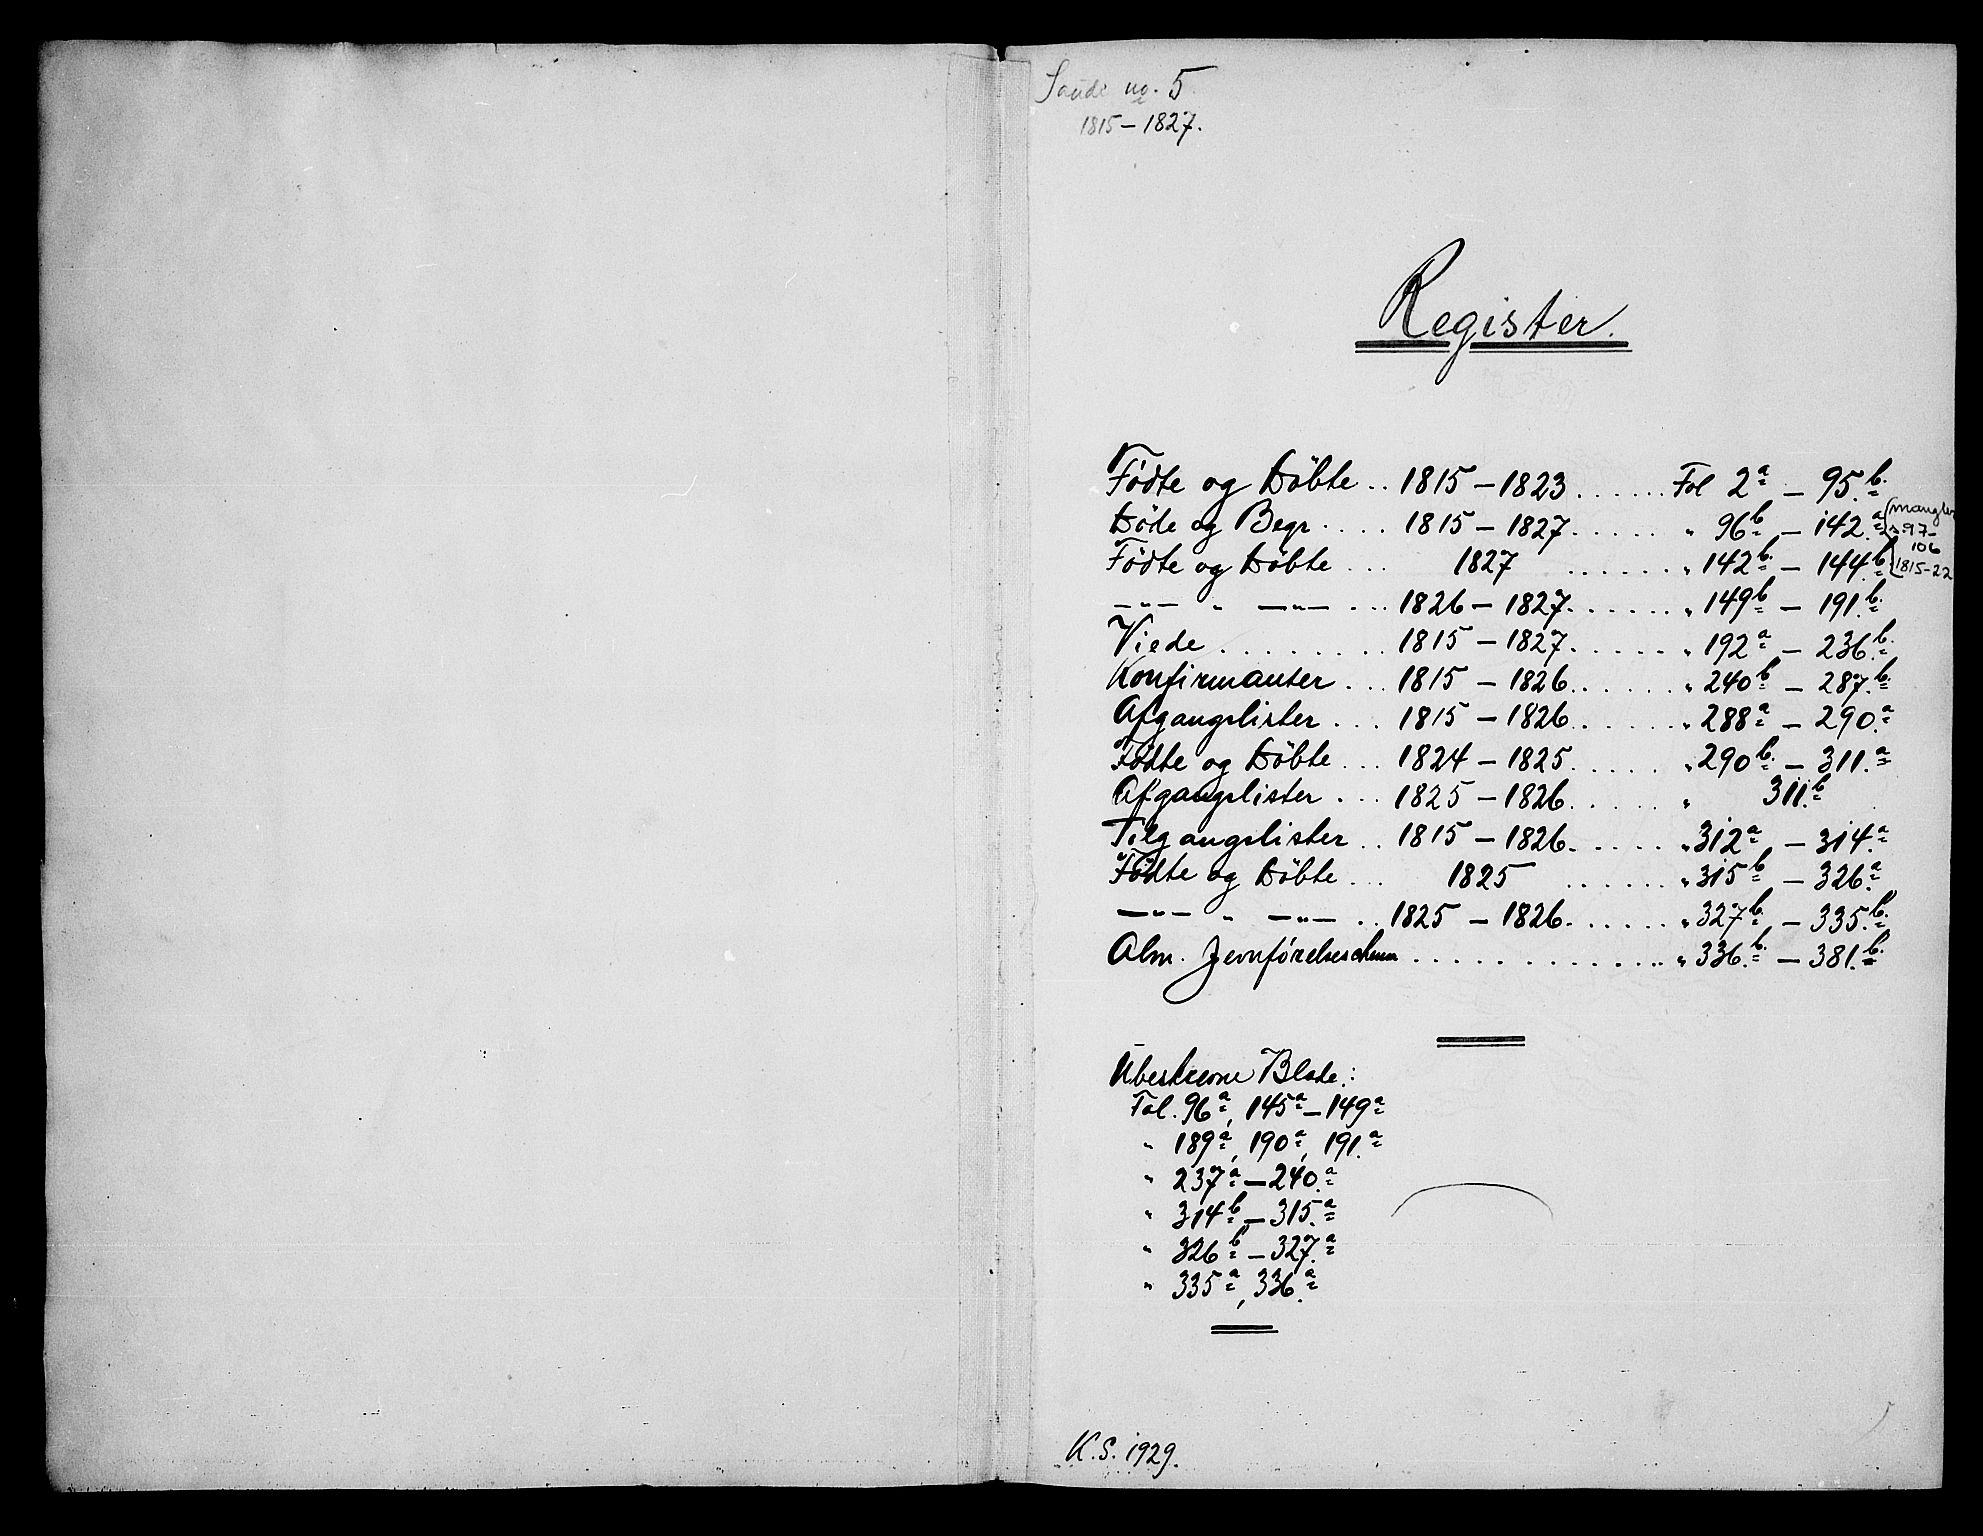 Sande no. 5
1815 – 1827.
Register.
Födte og Döbte .. 1815 – 1823 ...... Fol 2a – 95.b.
Döde og Begr. .... 1815 – 1827 ...... " 96b – 142.a (mangler
p. 97-
106
1815-22
Födte og Döbte ... 1827 ...... " 142b. – 144.b
–"– " –"– ... 1826 – 1827 ...... " 149b – 191.b.
Viede ......... 1815 – 1827 ...... " 192a – 236.b.
Konfirmanter ... 1815 – 1826 ...... " 240b – 287.b.
Afgangslister ... 1815 – 1826 ...... " 288a – 290.a
Födte og Döbte ... 1824 – 1825 ...... " 290b. – 311.a
Afgangslister ... 1825 – 1826 ...... " 311.b
Tilgangslister .. 1815 – 1826 ...... " 312a – 314.a
Födte og Döbte ... 1825 ...... " 315b – 326.a
–"– " –"– .. 1825 – 1826 ...... " 327b. – 335.b.
Alm. Jevnförelseschema .............. " 336.b. – 381.b.
Ubeskrevne Blade.:
Fol. 96a, 145a – 149a
" 189a, 190a, 191.a
" 237a – 240.a
" 314b – 315.a
" 326b – 327.a
" 335a, 336.a
K.S. 1929.